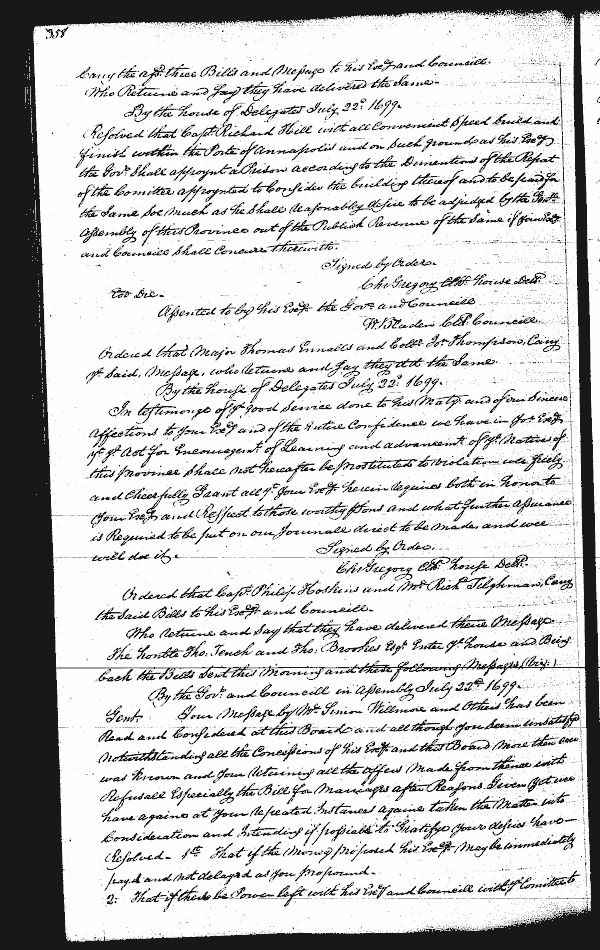 358
Carry the afsd three Bills and Message to his Excy and Councill.
Who Returne and Say they have delivered the Same.
By the house of Delegates July 22d. 1699.
Resolved that Capt Richard Hill with all Convenient Speed build and
finish within the Porte of Annapolis and on Such ground as his Excy
the Govr Shall appoynt a Prison according to the Dimentions of the Report
of the Comittee appoynted to Consider the building thereof and to be paid for
the Same Soe much as he Shall reasonably desire to be adjudged by the Genll
Assembly of this Province out of the Publick Revenue of the Same if yor Excy
and Councill Shall Concurr therewith.
Signed by Order.
Chr Gregory Clk. house Delts.
Eod Die.
Assented to by his Excy the Govr and Councill
W. Bladen Clk Councill
Ordered that Major Thomas Ennalls and Collo. Jon Thompson, Carry
ye Said, Message, who returne and Say they did the Same
By the house of Delegates July 22d. 1699.
In testimonye of ye good Service done to his Maty and of our Sincere
Affections to Your Excy and of the entire Confidence we have in yor Excy
yt ye Act for Encouragemt. of Learning and advancemt. of ye Natives of
this Province Shall not hereafter be prostituted to violation wee freely
and Cheerfully Grant all yt Your Excy herein requires both in honor to
Your Excy and Respect to those worthy psons and what further Assurance
is Required to be put on our Journale direct to be made and wee
will doe it.
Signed by Order.
Chr Gregory Clk. house Delts.
Ordered that Capt. Philip Hoskins and Mr Richd Tilghman, Carry
the Said Bills to his Excy and Councill.
Who returne and Say that they have delivered theire Message
The honble Tho: Tench and Tho: Brookes Esqr. Enter ye house and Bring
back the Bills Sent this Morning and these following Messages (viz:)
By the Govr. and Councill in Assembly July 22d. 1699.
Gent. Your Message by Mr Simon Willmore and Others has been
Read and Considered at this Board and all though you Seem unsatisfyd
Notwithstanding all the Concessions of his Excy and this Board more then ever
was Known and Your returning all the Offers Made from thence with
Refusall Especially the Bill for Marriages after Reasons Given yet wee
have againe at Your repeated Instances Againe taken the Matter into
Consideration and Intending if possible to Gratifye Your desires have
Resolved. 1st. That if the Money proposed his Excy May be immediately
payd and not delayed as You propound.
2: That if there be Power left with his Excy and Councill with ye Comittee to